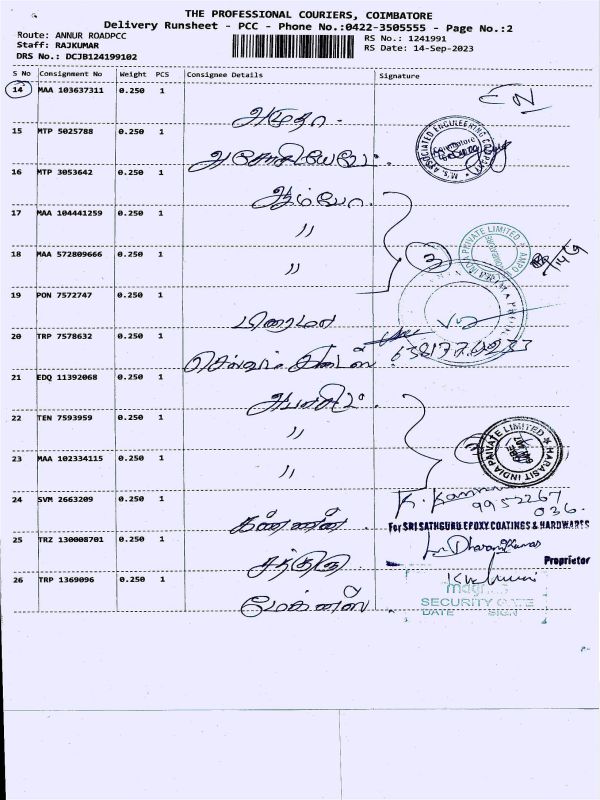 THE PROFESSIONAL COURIERS, COIMBATORE
Delivery Runsheet - PCC - Phone No.:0422-3505555 - Page No.:2
Route: ANNUR ROADPCC
RS No.: 1241991
Staff: RAJKUMAR
RS Date: 14-Sep-2023
DRS No.: DCJB124199102
S No Consignment No Weight PCS Consignee Details Signature
14 MAA 103637311 0.250 1
அமுதா.
15 MTP 5025788 0.250 1
M/S. ASSOCIATED ENGINEERING COMPANY
16 MTP 3053642 0.250 1
17 MAA 104441259 0.250 1
"
18 MAA 572809666 0.250 1
"
3
14/9
19 PON 7572747 0.250 1
20 TRP 7578632 0.250 1
21 EDQ 11392068 0.250 1
22 TEN 7593959 0.250 1
"
HARASIT INDIA PRIVATE LIMITED
23 MAA 102334115 0.250 1
"
24 SVM 2663209 0.250 1
9952267
036
கண்ணன்
For SRI SATHGURU EPOXY COATINGS & HARDWARES
25 TRZ 130008701 0.250 1
Proprietor
சத்குரு
26 TRP 1369096 0.250 1
மேக்னஸ்
SECURITY GATE
DATE SIGN